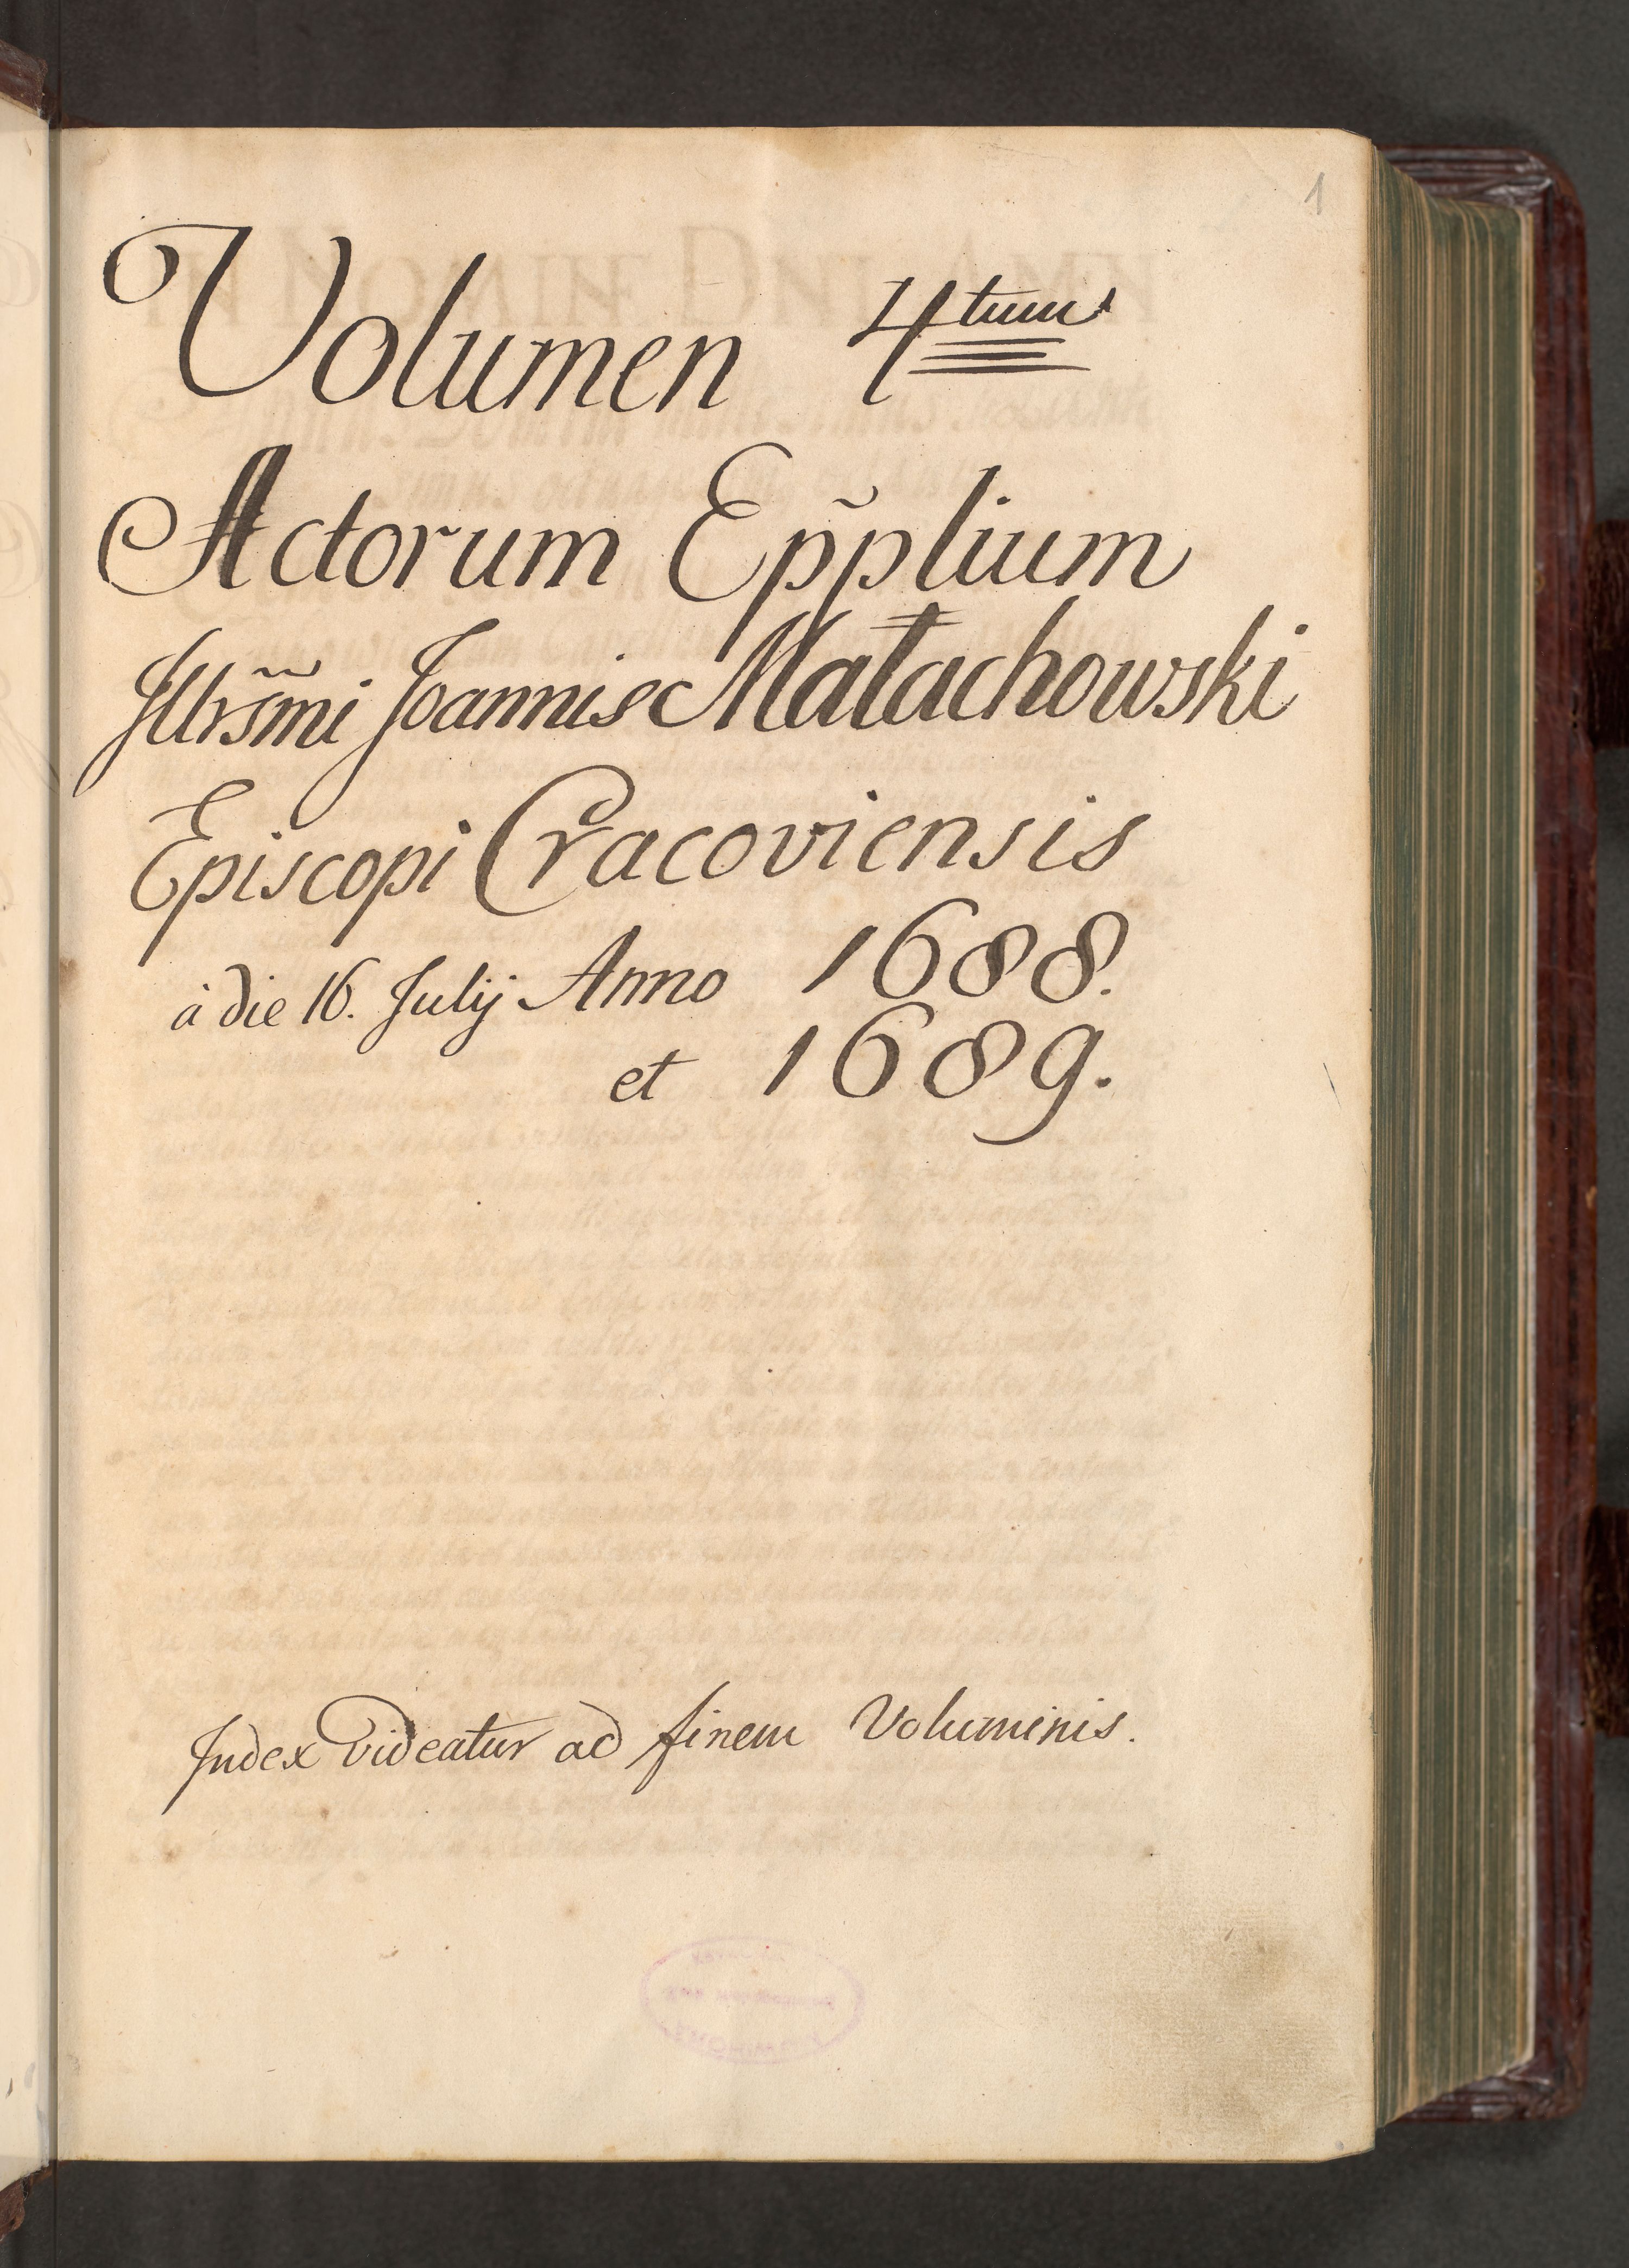 1
Volumen 4tum
Actorum Epp̃lium
Jllr̃s̃mi Joannis Małachowski
Episcopi Cracoviensis
à die 16. Julij Anno 1688.
et 1689.
Index videatur ad finem Voluminis.